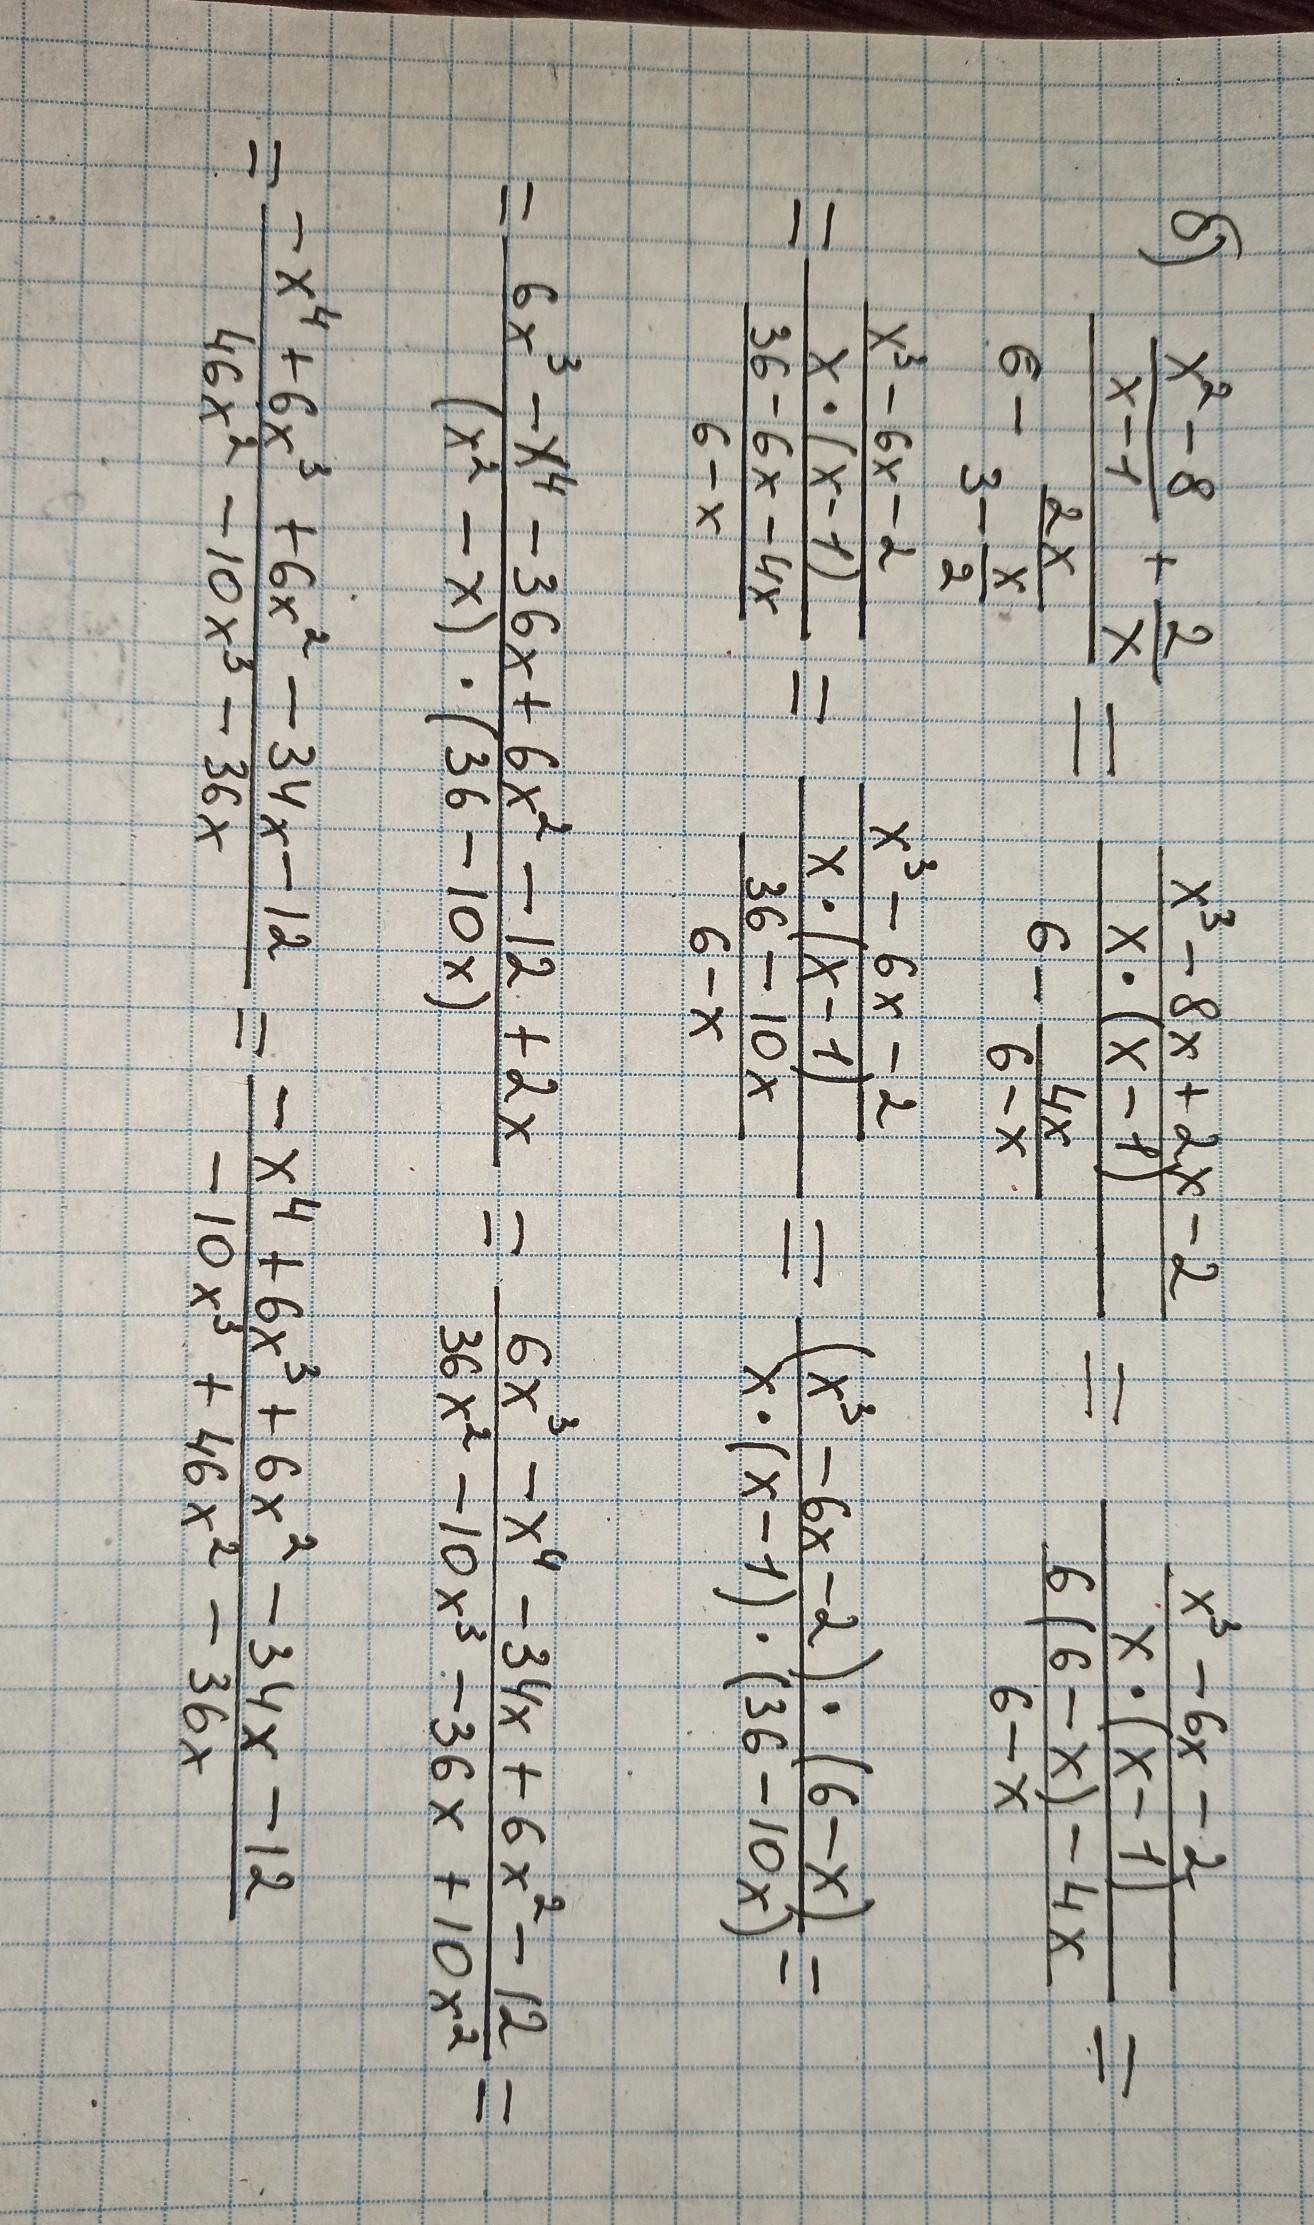 б) \frac{\frac{x^2-8}{x-1}+\frac{2}{x}}{6-\frac{2x}{3-\frac{x}{2}}} = \frac{\frac{x^3-8x+2x-2}{x\cdot(x-1)}}{6-\frac{4x}{6-x}} = \frac{\frac{x^3-6x-2}{x\cdot(x-1)}}{\frac{6(6-x)-4x}{6-x}} =
= \frac{\frac{x^3-6x-2}{x\cdot(x-1)}}{\frac{36-6x-4x}{6-x}} = \frac{\frac{x^3-6x-2}{x\cdot(x-1)}}{\frac{36-10x}{6-x}} = \frac{(x^3-6x-2)\cdot(6-x)}{x\cdot(x-1)\cdot(36-10x)} =
= \frac{6x^3-x^4-36x+6x^2-12+2x}{(x^2-x)\cdot(36-10x)} = \frac{6x^3-x^4-34x+6x^2-12}{36x^2-10x^3-36x+10x^2} =
= \frac{-x^4+6x^3+6x^2-34x-12}{46x^2-10x^3-36x} = \frac{-x^4+6x^3+6x^2-34x-12}{-10x^3+46x^2-36x}